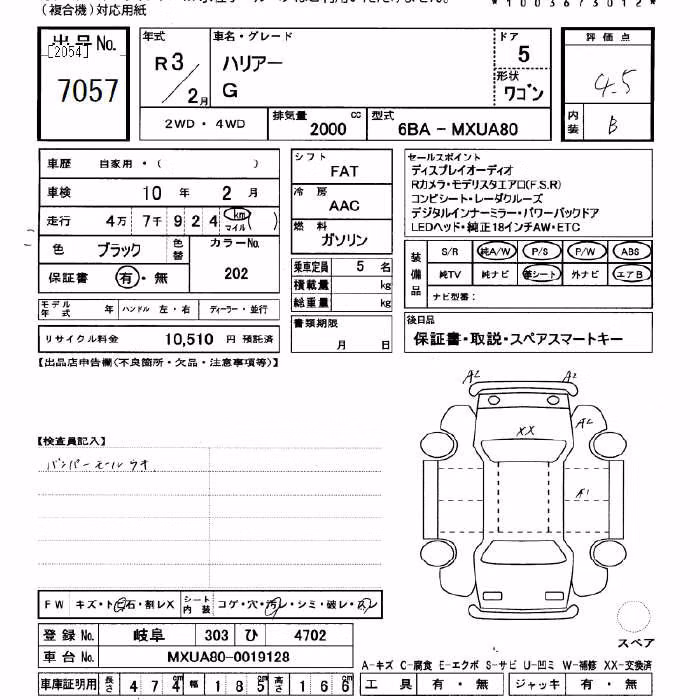 (複合機)対応用紙
*10036730​12*
出品No.
[2054]
7057
年式
R3/2月
車名・グレード
ハリアー
G
ドア
5
形状
ワゴン
評価点
4.5
内装
B
2WD・4WD
排気量
2000
cc
型式
6BA-MXUA80
車歴 自家用・( )
車検 10年 2月
走行 4万 7千 9 2 4 km マイル ( )
色 ブラック
色替
カラーNo.
202
保証書 有・無
モデル年式 年 ハンドル 左・右 ディーラー・並行
リサイクル料金 10,510 円 預託済
シフト
FAT
冷房
AAC
燃料
ガソリン
乗車定員 5 名
積載量 kg
総重量 kg
書類期限
月 日
セールスポイント
ディスプレイオーディオ
Rカメラ・モデリスタエアロ(F.S.R)
コンビシート・レーダクルーズ
デジタルインナーミラー・パワーバックドア
LEDヘッド・純正18インチAW・ETC
装備品
S/R 純A/W P/S P/W ABS
純TV 純ナビ 革シート 外ナビ エアB
ナビ型番:
後日品
保証書・取説・スペアスマートキー
【出品店申告欄(不良箇所・欠品・注意事項等)】
【検査員記入】
バンパーモールウオ
A2 A2
A2
XX
A1
FW キズ・ト石・割レX
シート内装 コゲ・穴・汚レ・シミ・破レ・
登録No. 岐阜 303 ひ 4702
車台No. MXUA80-0019128
車庫証明用 長さ 474cm 幅 185cm 高さ 166cm
スペア
A-キズ C-腐食 E-エクボ S-サビ U-凹ミ W-補修 XX-交換済
工具 有・無 ジャッキ 有・無